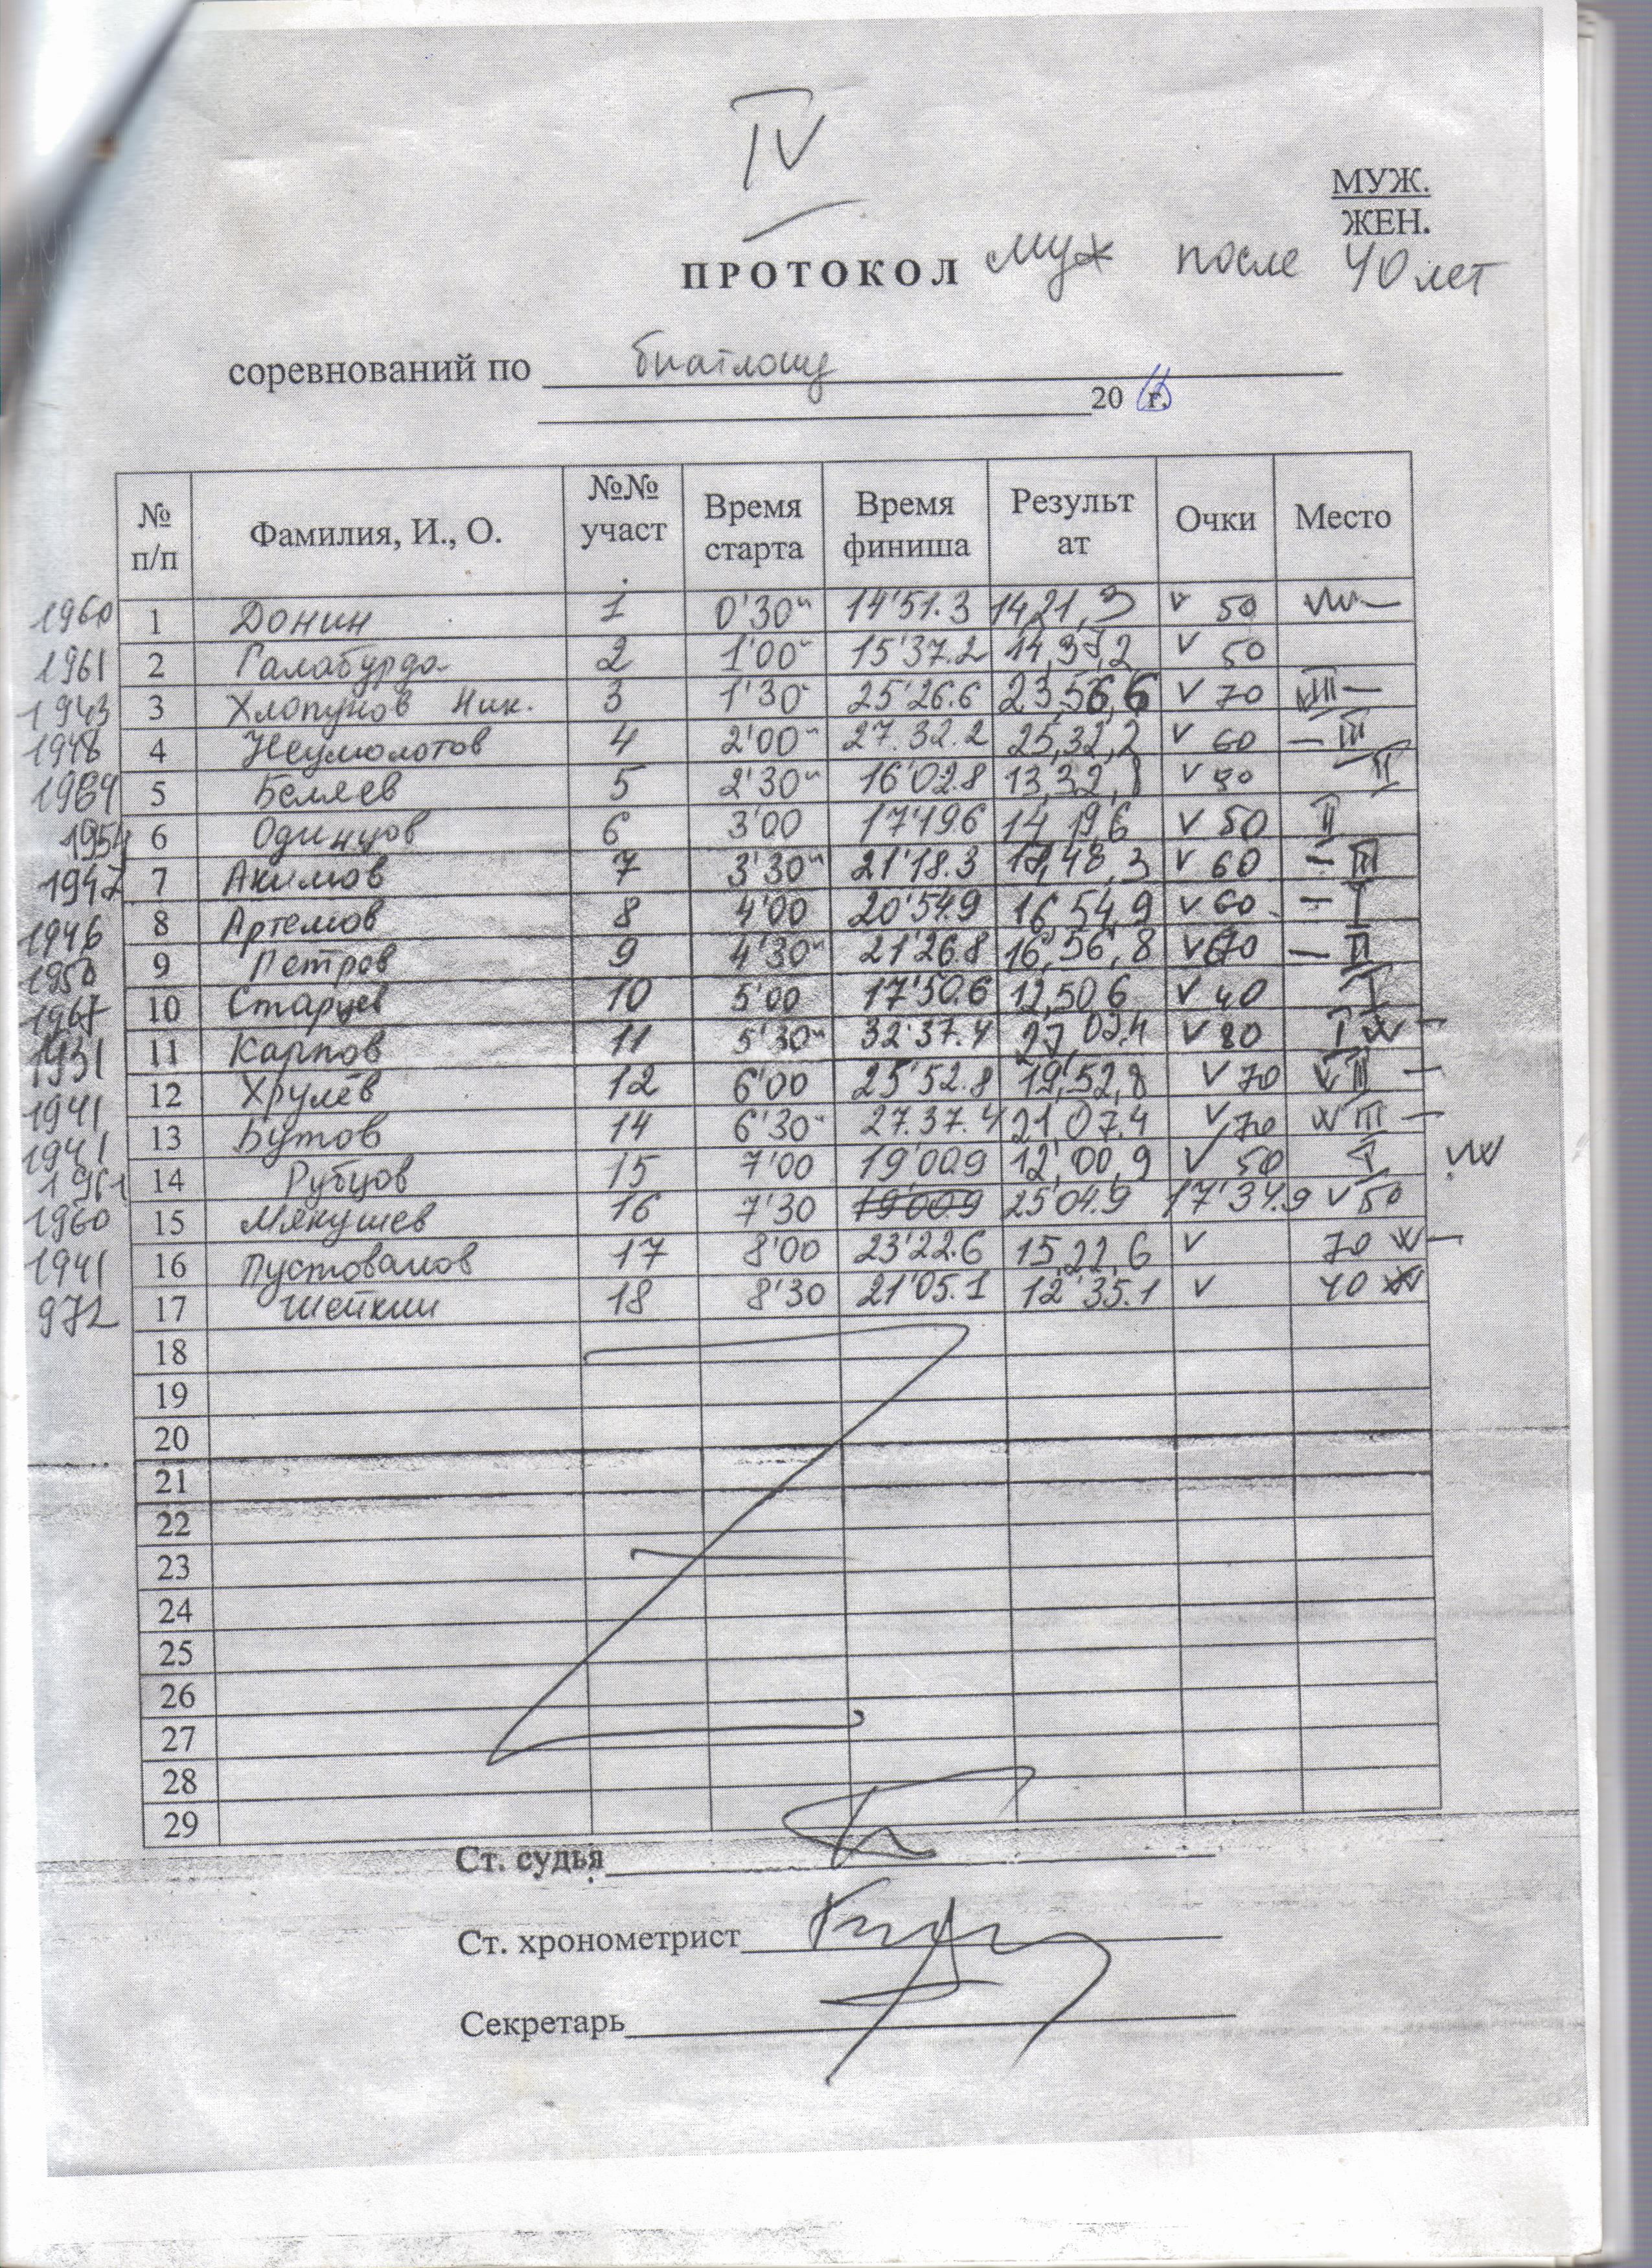 IV
МУЖ.
ЖЕН.
ПРОТОКОЛ муж после 40 лет
соревнований по биатлону
20 г.
№ п/п Фамилия, И., О. №№ участ Время старта Время финиша Результат Очки Место
1960 1 Донин 1 0'30" 14'51.3 14,21,3 v 50
1961 2 Галабурда 2 1'00" 15'37.2 14,37,2 v 50
1943 3 Хлопунов Ник. 3 1'30" 25'26.6 23,56,6 v 70 VIII —
1948 4 Неумолотов 4 2'00" 27.32.2 25,32,2 v 60 — III
5 Беляев 5 2'30" 16'02.8 13,32, v II
1954 6 Одинцов 6 3'00 17'19.6 14 19,6 v 50 II
1947 7 Акимов 7 3'30" 21'18.3 48,3 v 60 — III
1946 8 Артемов 8 4'00 20'54.9 16,54,9 v 60 — I
1950 9 Петров 9 4'30" 21'26.8 16,56,8 v — II
1967 10 Старцев 10 5'00 17'50.6 12,50 6 v 40 I
1931 11 Карпов 11 5'30" 32'37.4 v 80 I
1941 12 Хрулёв 12 6'00 25'52.8 19,52,8 v 70 II —
1941 13 Бутов 14 6'30" 27.37.4 21,07.4 v 70 III —
1961 14 Рубцов 15 7'00 19'00.9 12,00,9 v 50 I
1960 15 Мякушев 16 7'30 19'00.9 25'04.9 17'34.9 v 50
1941 16 Пустовалов 17 8'00 23'22.6 15,22,6 v 70
972 17 Шейкин 18 8'30 21'05.1 12'35.1 v 40
18
19
20
21
22
23
24
25
26
27
28
29
Ст. судья
Ст. хронометрист
Секретарь